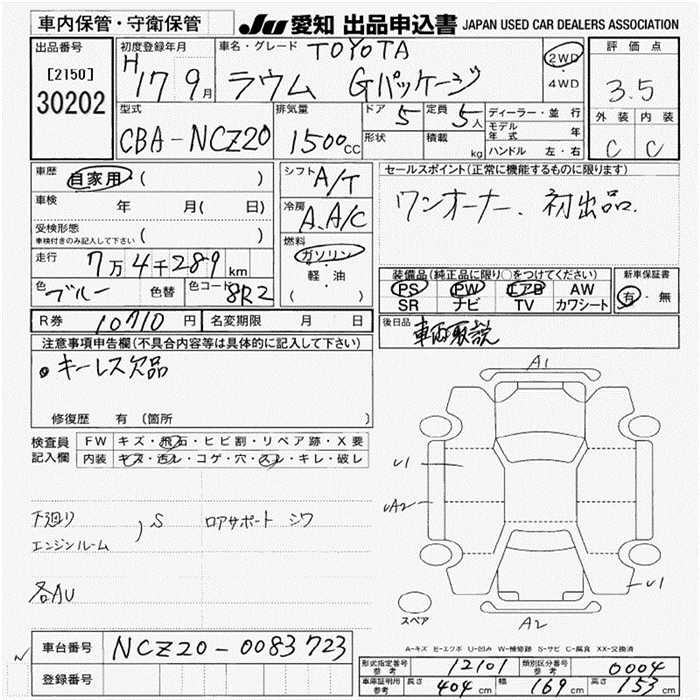 車内保管・守衛保管
JU 愛知 出品申込書 JAPAN USED CAR DEALERS ASSOCIATION
出品番号 [2150] 30202
初度登録年月 H 17 9月
車名・グレード TOYOTA ラウム Gパッケージ
2WD・4WD
評価点 3.5
外装 内装
C C
型式 CBA-NCZ20
排気量 1500cc
ドア 5 定員 5人
形状 積載 kg
ディーラー・並行
モデル年式 年
ハンドル 左・右
車歴 自家用 ( )
シフト A/T
セールスポイント(正常に機能するものに限ります)
ワンオーナー、初出品.
車検 年 月( 日)
冷房 A.A/C
受検形態
車検付きのみ記入して下さい ( )
燃料 ガソリン
軽・油
( )
走行 7万4千289km
装備品(純正品に限り○をつけてください)
PS PW エアB AW
SR ナビ TV カワシート
新車保証書
有・無
色 ブルー 色替 色コード 8R2
R券 10710円 名変期限 月 日
後日品 車両取説
注意事項申告欄(不具合内容等は具体的に記入して下さい)
キーレス欠品
修復歴 有 (箇所 )
検査員記入欄
FW キズ・飛石・ヒビ割・リペア跡・X要
内装 キズ・汚レ・コゲ・穴・スレ・キレ・破レ
下廻り
エンジンルーム
, S ロアサポート シワ
各AU
A1
U1
UA2
U1
スペア
A2
A-キズ E-エクボ U-凹み W-補修跡 S-サビ C-腐食 XX-交換済
車台番号 NCZ20-0083723
登録番号
形式指定番号 参考 12101 類別区分番号 参考 0004
車庫証明用 参考 長さ 404cm 幅 169cm 高さ 153cm